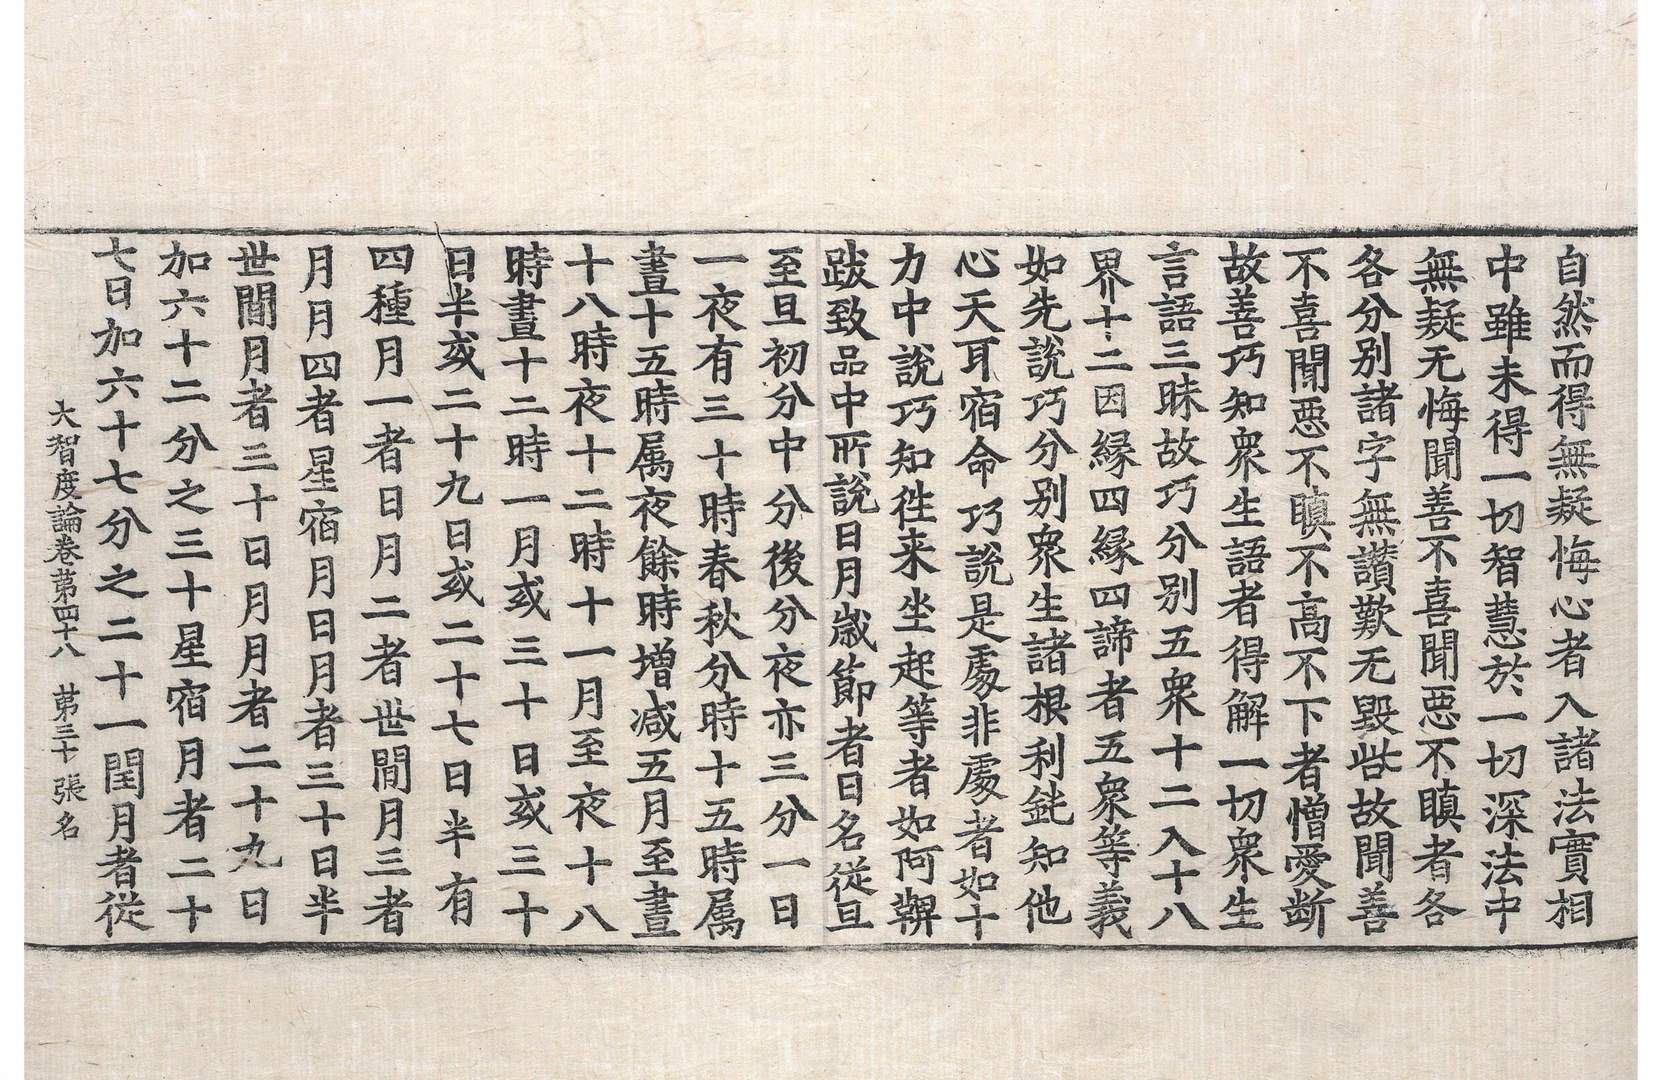 自然而得無疑悔心者入諸法實相
中雖未得一切智慧於一切深法中
無疑无悔聞善不喜聞悪不瞋者各
各分别諸字無讃歎无毀呰故聞善
不喜聞悪不瞋不高不下者憎愛断
故善巧知衆生語者得解一切衆生
言語三昧故巧分别五衆十二入十八
界十二因縁四縁四諦者五衆等義
如先說巧分别衆生諸根利鈍知他
心天耳宿命巧說是處非處者如十
力中說巧知徃来坐起等者如阿鞞
跋致品中所說日月歳節者日名従旦
至旦初分中分後分夜亦三分一日
一夜有三十時春秋分時十五時属
晝十五時属夜餘時増减五月至晝
十八時夜十二時十一月至夜十八
時晝十二時一月或三十日或三十
日半或二十九日或二十七日半有
四種月一者日月二者世間月三者
月月四者星宿月日月者三十日半
世間月者三十日月月者二十九日
加六十二分之三十星宿月者二十
七日加六十七分之二十一閏月者従
大智度論卷第四十八 苐三十張名